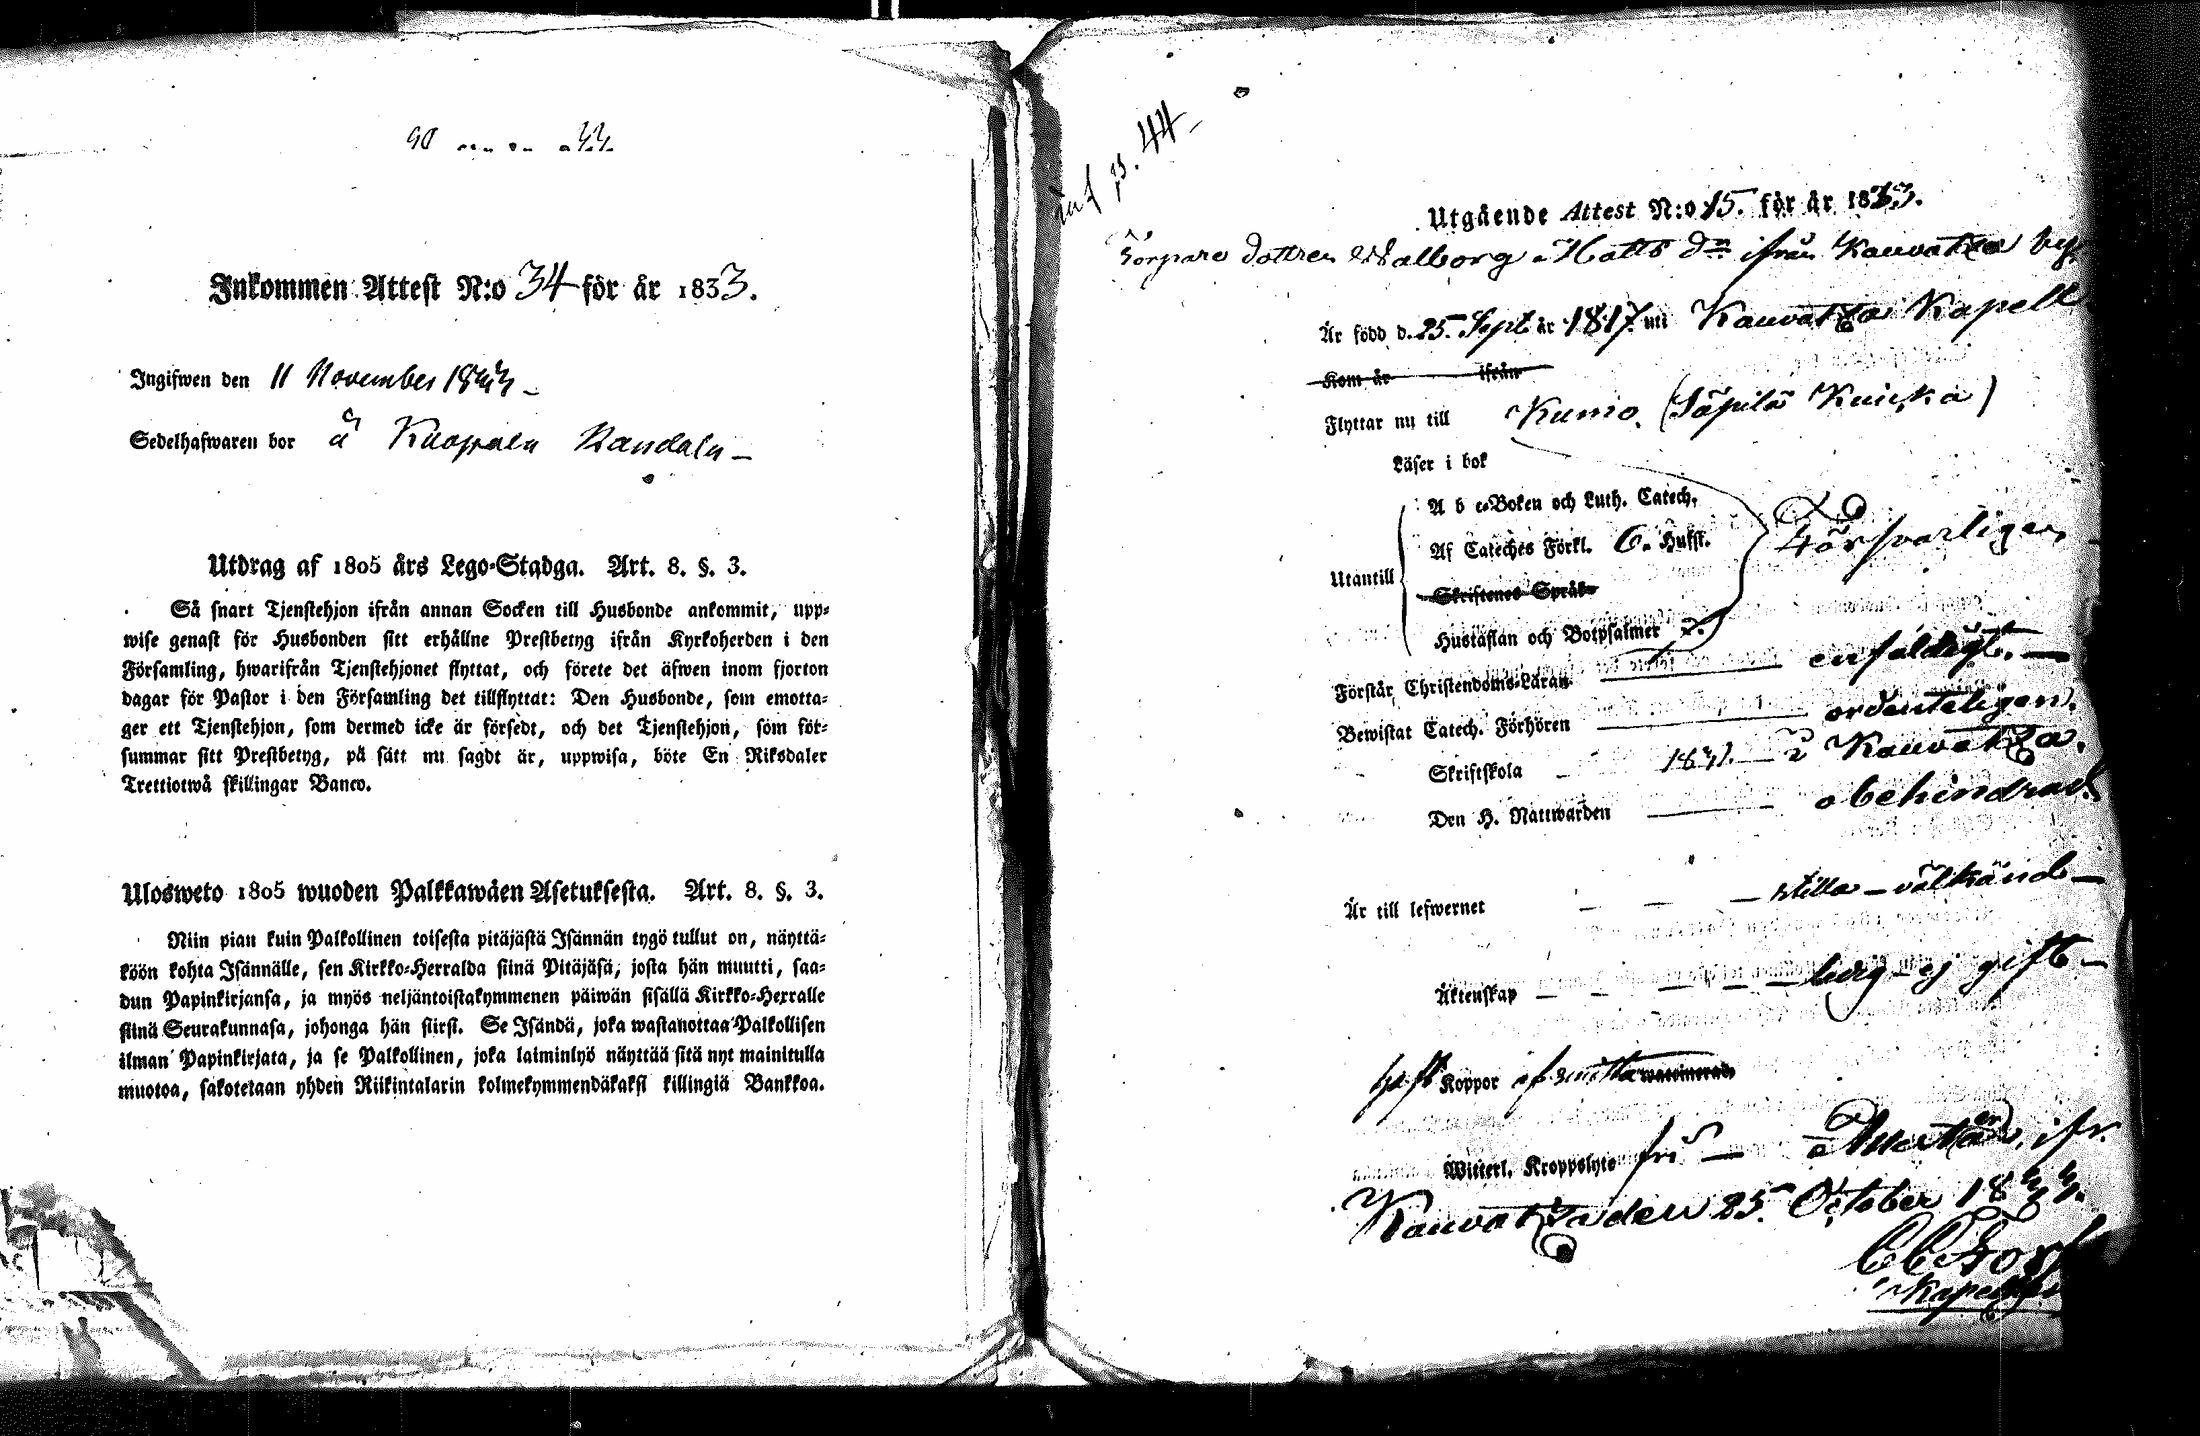 Inkommen Attest N:o 34 för år 1833.
Ingifwen den 11 November 1833
Sedelhafwaren bor å Kuopala Randala
Utdrag af 1805 års Lego-Stadga. Art. 8. §. 3.
Så snart Tjenstehjon ifrån annan Socken till Husbonde ankommit, upp-
wise genast för Husbonden sitt erhållne Prestbetyg ifrån Kyrkoherden i den
Församling, hwarifrån Tjenstehjonet flyttat, och förete det äfwen inom fjorton
dagar för Pastor i den Församling det tillflyttat: Den Husbonde, som emotta-
ger ett Tjenstehjon, som dermed icke är försedt, och det Tjenstehjon, som för-
summar sitt Prestbetyg, på sätt nu sagdt är, uppwisa, böte En Riksdaler
Trettiotwå skillingar Banco.
Ulosweto 1805 wuoden Palkkawäen Asetuksesta. Art. 8. §. 3.
Niin pian kuin Palkollinen toisesta pitäjästä Isännän tygö tullut on, näyttä-
köön kohta Isännälle, sen Kirkko-Herralda siinä Pitäjäsä, josta hän muutti, saa-
dun Papinkirjansa, ja myös neljäntoistakymmenen päiwän sisällä Kirkko-Herralle
siinä Seurakunnasa, johonga hän siirsi. Se Isändä, joka wastanottaa Palkollisen
ilman Papinkirjata, ja se Palkollinen, joka laiminlyö näyttää sitä nyt mainitulla
muotoa, sakotetaan yhden Riikintalarin kolmekymmendäkaksi killingiä Bankkoa.
inf p. 44
Utgående Attest N:o 15. för år 1833.
Torpare dottren Walborg Matts dr ifrån Kauvatza by
Är född d. 25. Sept år 1817. uti Kauvatza Kapell
Kom år ifrån
Flyttar nu till Kumo. (Säpilä Kuicka)
Läser i bok
A b c-Boken och Luth. Catech.
Af Cateches Förkl. 6. Hufst.
Försvarligen
Utantill
Skriftenes Språk
Hustaflan och Botpsalmer 2.
Förstår Christendoms-Läran enfaldigt.
Bewistat Catech. Förhören ordenteligen.
Skriftskola 1833. i Kauvatza.
Den H. Nattwarden obehindrad.
Är till lefwernet stilla - välkänd
Äktenskap ledig - ej gift
haft Koppor af smitta waccinerad
Witterl. Kroppslyte fri Attesterar, ifr.
Kauvatza den 25. October 1833.